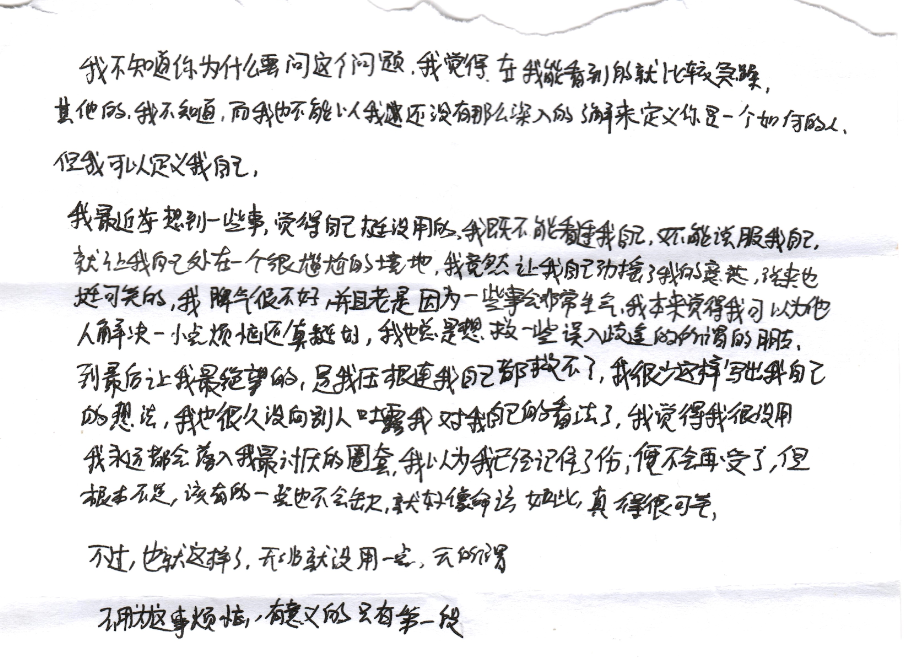 我不知道你为什么要问这个问题,我觉得,在我能看到的就比较急躁,
其他的,我不知道,而我也不能以我还没有那么深入的了解来定义你是一个如何的人,
但我可以定义我自己,
我最近老想到一些事,觉得自己挺没用的,我既不能看透我自己,又不能说服我自己,
就让我自己处在一个很尴尬的境地,我竟然让我自己动摇了我的意志,说来也
挺可笑的,我脾气很不好,并且老是因为一些事会非常生气,我本来觉得我可以为他
人解决一点烦恼还真挺好,我也总是想救一些误入歧途的所谓的朋友,
到最后让我最绝望的,是我压根连我自己都救不了,我很少这样写出我自己
的想法,我也很久没向别人吐露我对我自己的看法了,我觉得我很没用
我永远都会落入我最讨厌的圈套,我以为我已经记住了伤,便不会再受了,但
根本不是,该有的一些也不会缺,就好像命该如此,真得很可笑,
不过,也就这样了,无非就没用一些,无所谓
不用为这事烦恼,有意义的只有第一段